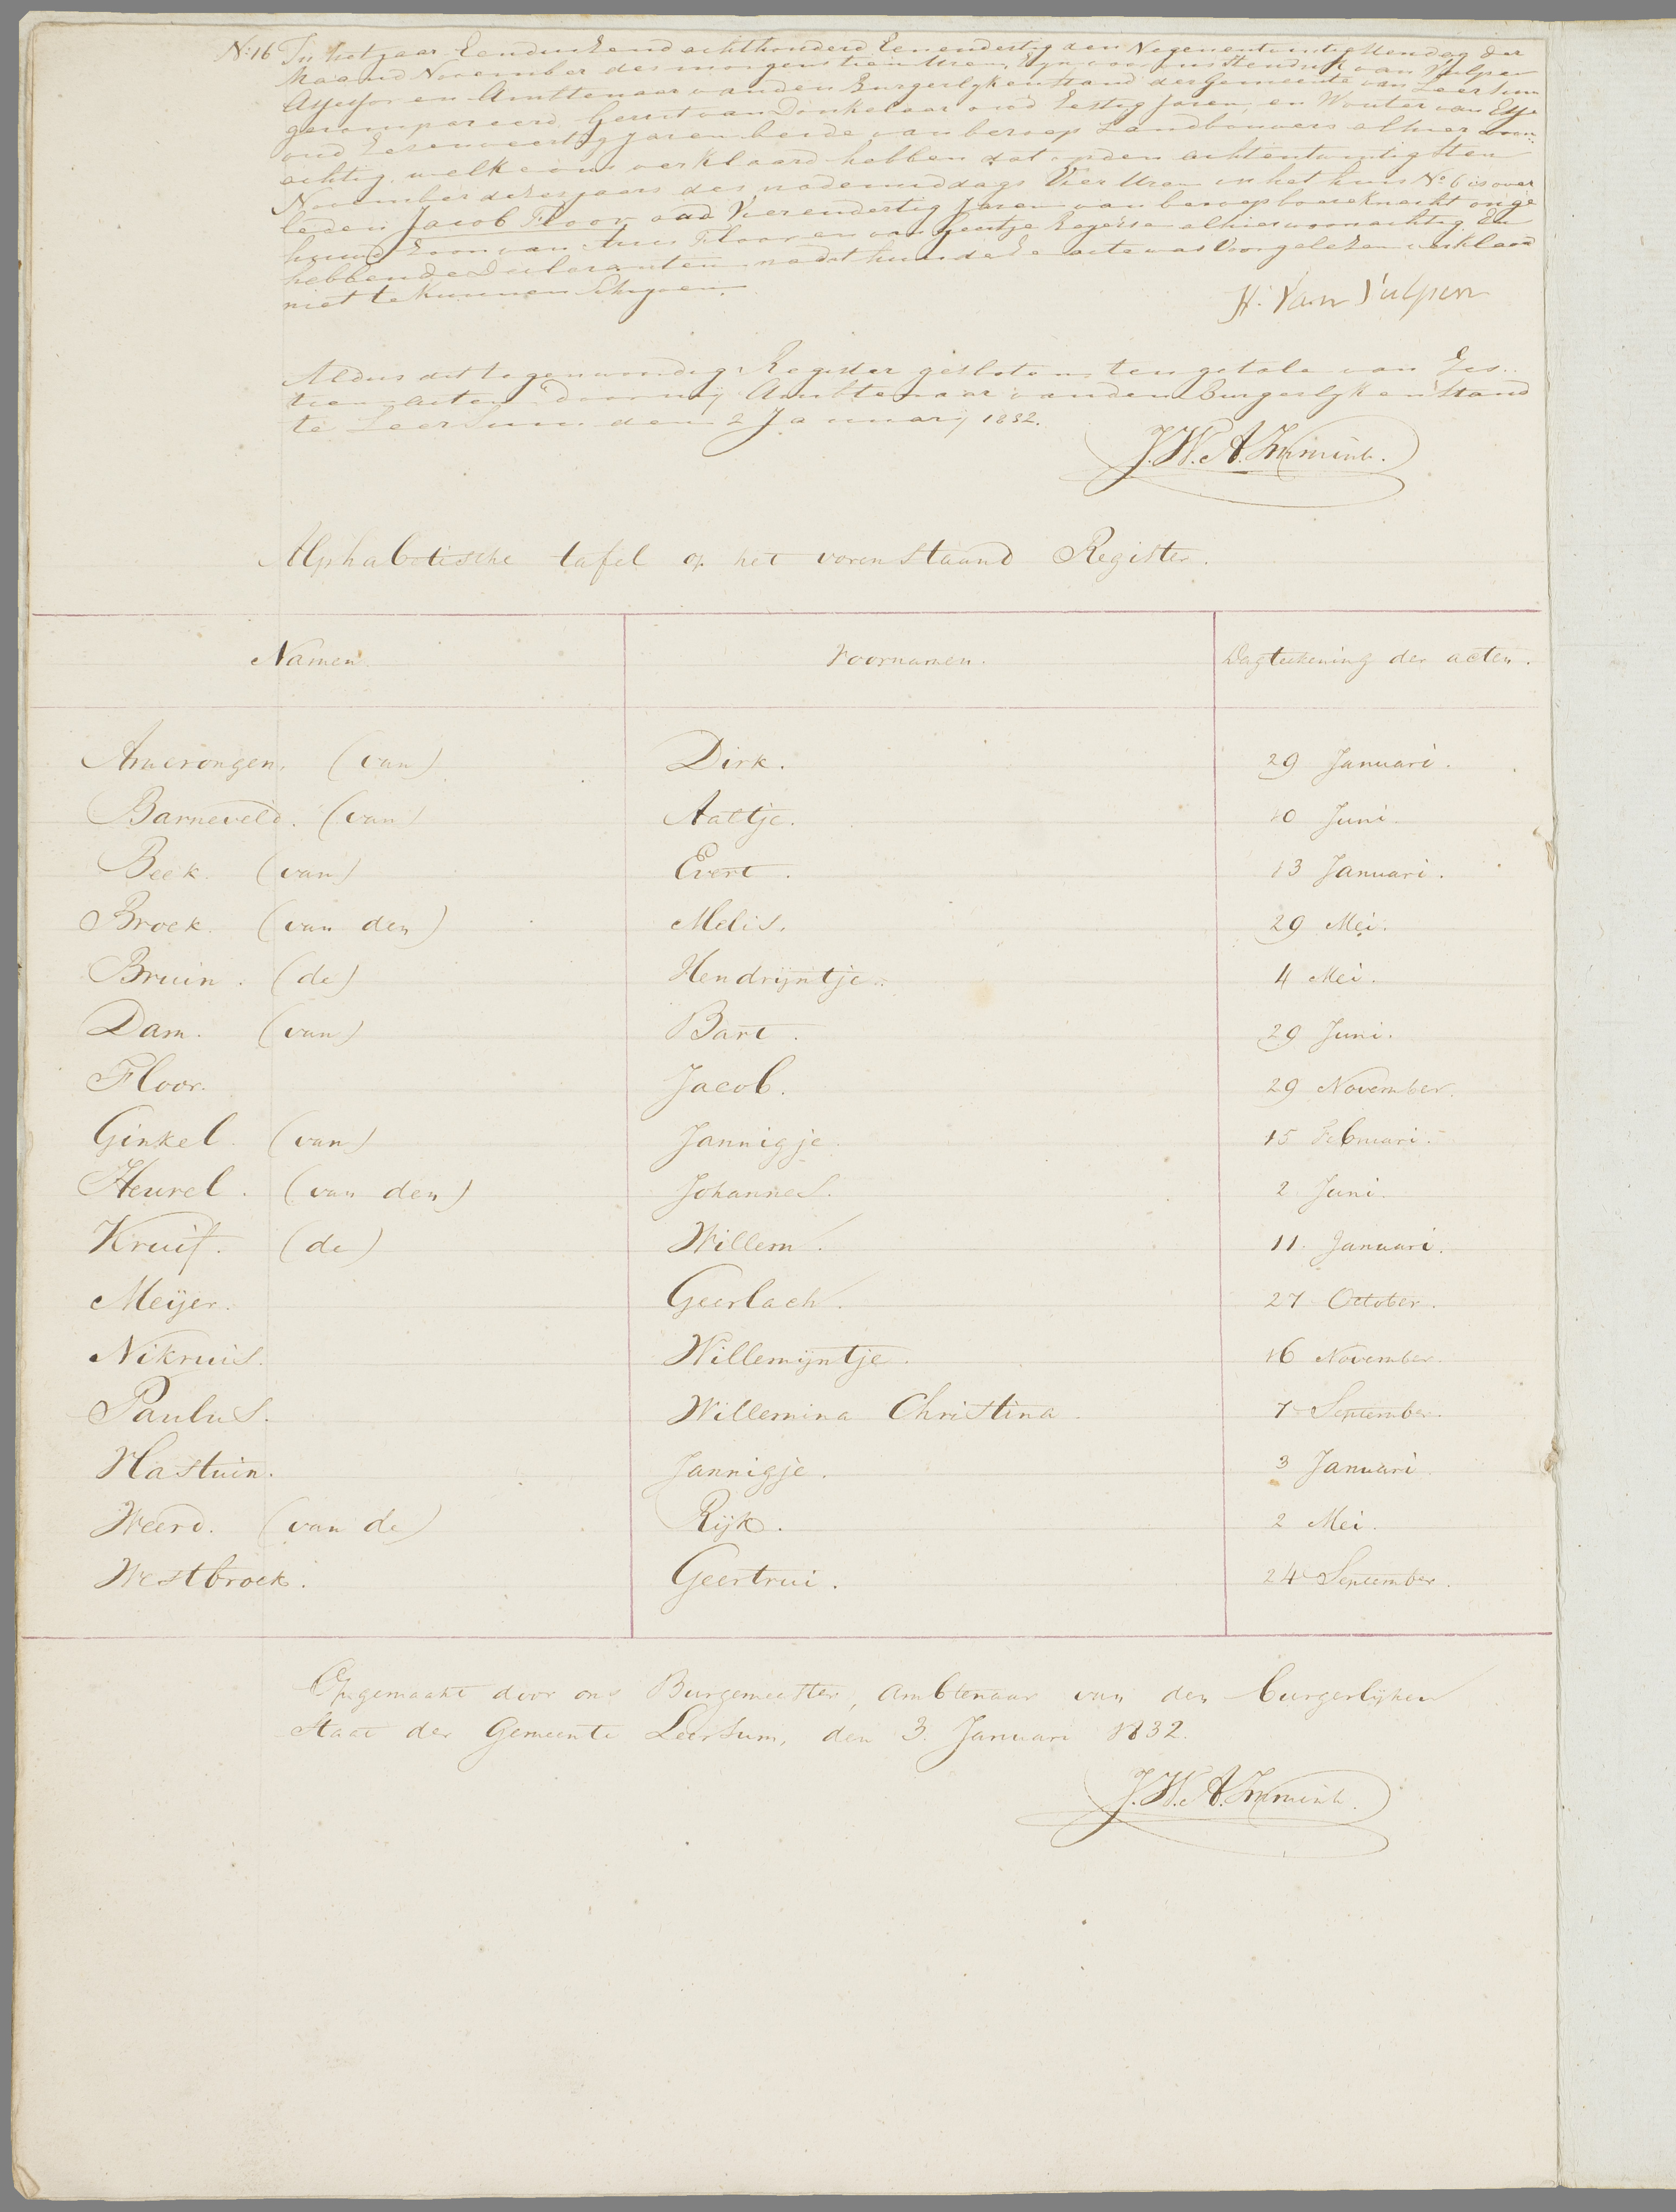 N:16 In het jaar Eenduizend achthonderd Eenendertig den Negenentwintigsten dag der
Maand November des morgens tien Uren, Zyn voor ons Hendrik van Vulpen
Assessor en Ambtenaar van den Burgerlyken Stand der Gemeente van Leersum
gecompareerd Gerrit van Donkelaar oud Zestig Jaren, en Wouter van Esse
oud Zesenveertig jaren beide van beroep Landbouwers alhier woon-
achtig, welke ons verklaard hebben dat op den achtentwintigsten
November dezes jaars des nademiddags Vier Uren in het huis No 6 is over
leden Jacob Floor oud Vierendertig Jaren van beroep boereknecht onge
huwd Zoon van Floor en van alhier woonachtig En
hebbende Declaranten nadat hun deze acte was Voorgelezen verklaard
niet te Kunnen Schryven.
H: Van Vulpen
Aldus dit tegenwoordig Register gesloten ten getale van Zes-
tien acten door my Ambtenaar van den Burgerlyken Stand
te Leersum den 2 January 1832.
J.W.A.
Alphabetische tafel op het vorenstaand Register.
Namen. Voornamen. Dagteekening der acten.
Amerongen. (van) Dirk. 29 Januari.
Barneveld. (van) Aaltje. 10 Juni.
Beek. (van) Evert. 13 Januari.
Broek. (van den) Melis. 29 Mei.
Bruin. (de) Hendrijntje. 4 Mei.
Dam. (van) Bart. 29 Juni.
Floor. Jacob. 29 November.
Ginkel. (van) Jannigje 15 Februari.
Heuvel. (van den) Johannes. 2 Juni.
Kruif. (de) Willem. 11. Januari.
Meijer. Geerlach. 27 October.
Nikruis. Willemijntje. 16 November.
Paulus. Willemina Christina. 7 September.
Hastuin. Jannigje. 3 Januari.
Weerd. (van de) Rijk. 2 Mei.
Westbroek. Geertrui. 24 September.
Opgemaakt door ons Burgemeester, Ambtenaar van den burgerlijken
Staat der Gemeente Leersum, den 3. Januari 1832.
J.W.A.